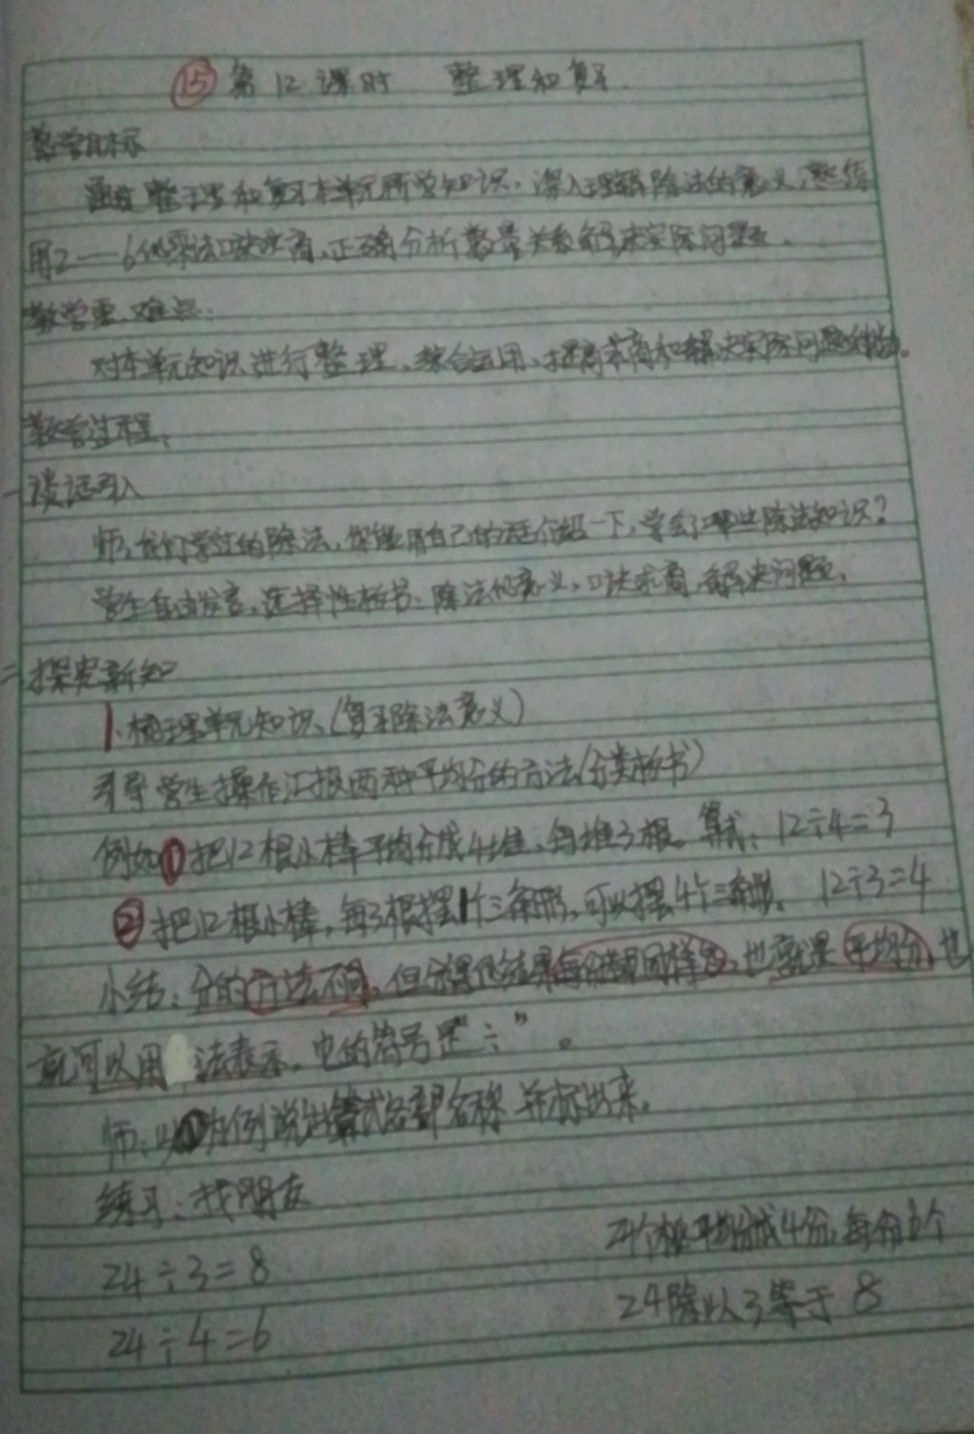 ⑮ 第12课时 整理和复习
教学目标
通过整理和复习本单元所学知识,深入理解除法的意义,熟练
用2——6的乘法口诀求商,正确分析数量关系解决实际问题。
教学重、难点:
对本单元知识进行整理、综合运用,提高求商和解决实际问题的
教学过程:
一 谈话引入
师:我们学过的除法,你能用自己的话介绍一下,学会了哪些除法知识?
学生自由发言,选择性板书:除法的意义、口诀求商,解决问题。
二 探究新知
1、梳理单元知识、(复习除法意义)
引导学生操作汇报两种平均分的方法(分类板书)
例如①把12根小棒平均分成4堆、每堆3根。算式:12÷4=3
②把12根小棒,每3根摆1个三角形,可以摆4个三角形。 12÷3=4
小结:分的方法不同,但分得的结果每份都同样多,也就是平均分,也
就可以用 法表示。它的符号是“÷”。
师:以①为例说出算式各部名称并标出来。
练习:找朋友
24÷3=8 24个 平均分成4份,每份6个
24÷4=6 24除以3等于8